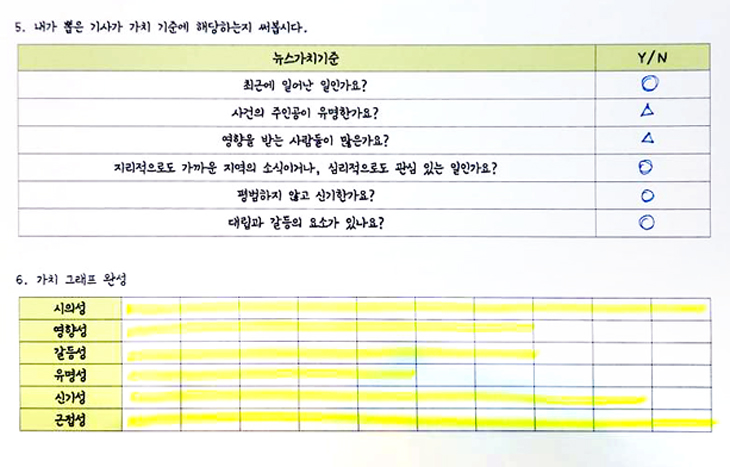 5. 내가 뽑은 기사가 가치 기준에 해당하는지 써봅시다.
뉴스가치기준 Y/N
최근에 일어난 일인가요? ○
사건의 주인공이 유명한가요? △
영향을 받는 사람들이 많은가요? △
지리적으로도 가까운 지역의 소식이거나, 심리적으로도 관심 있는 일인가요? ○
평범하지 않고 신기한가요? ○
대립과 갈등의 요소가 있나요? ○
6. 가치 그래프 완성
시의성
영향성
갈등성
유명성
신기성
근접성